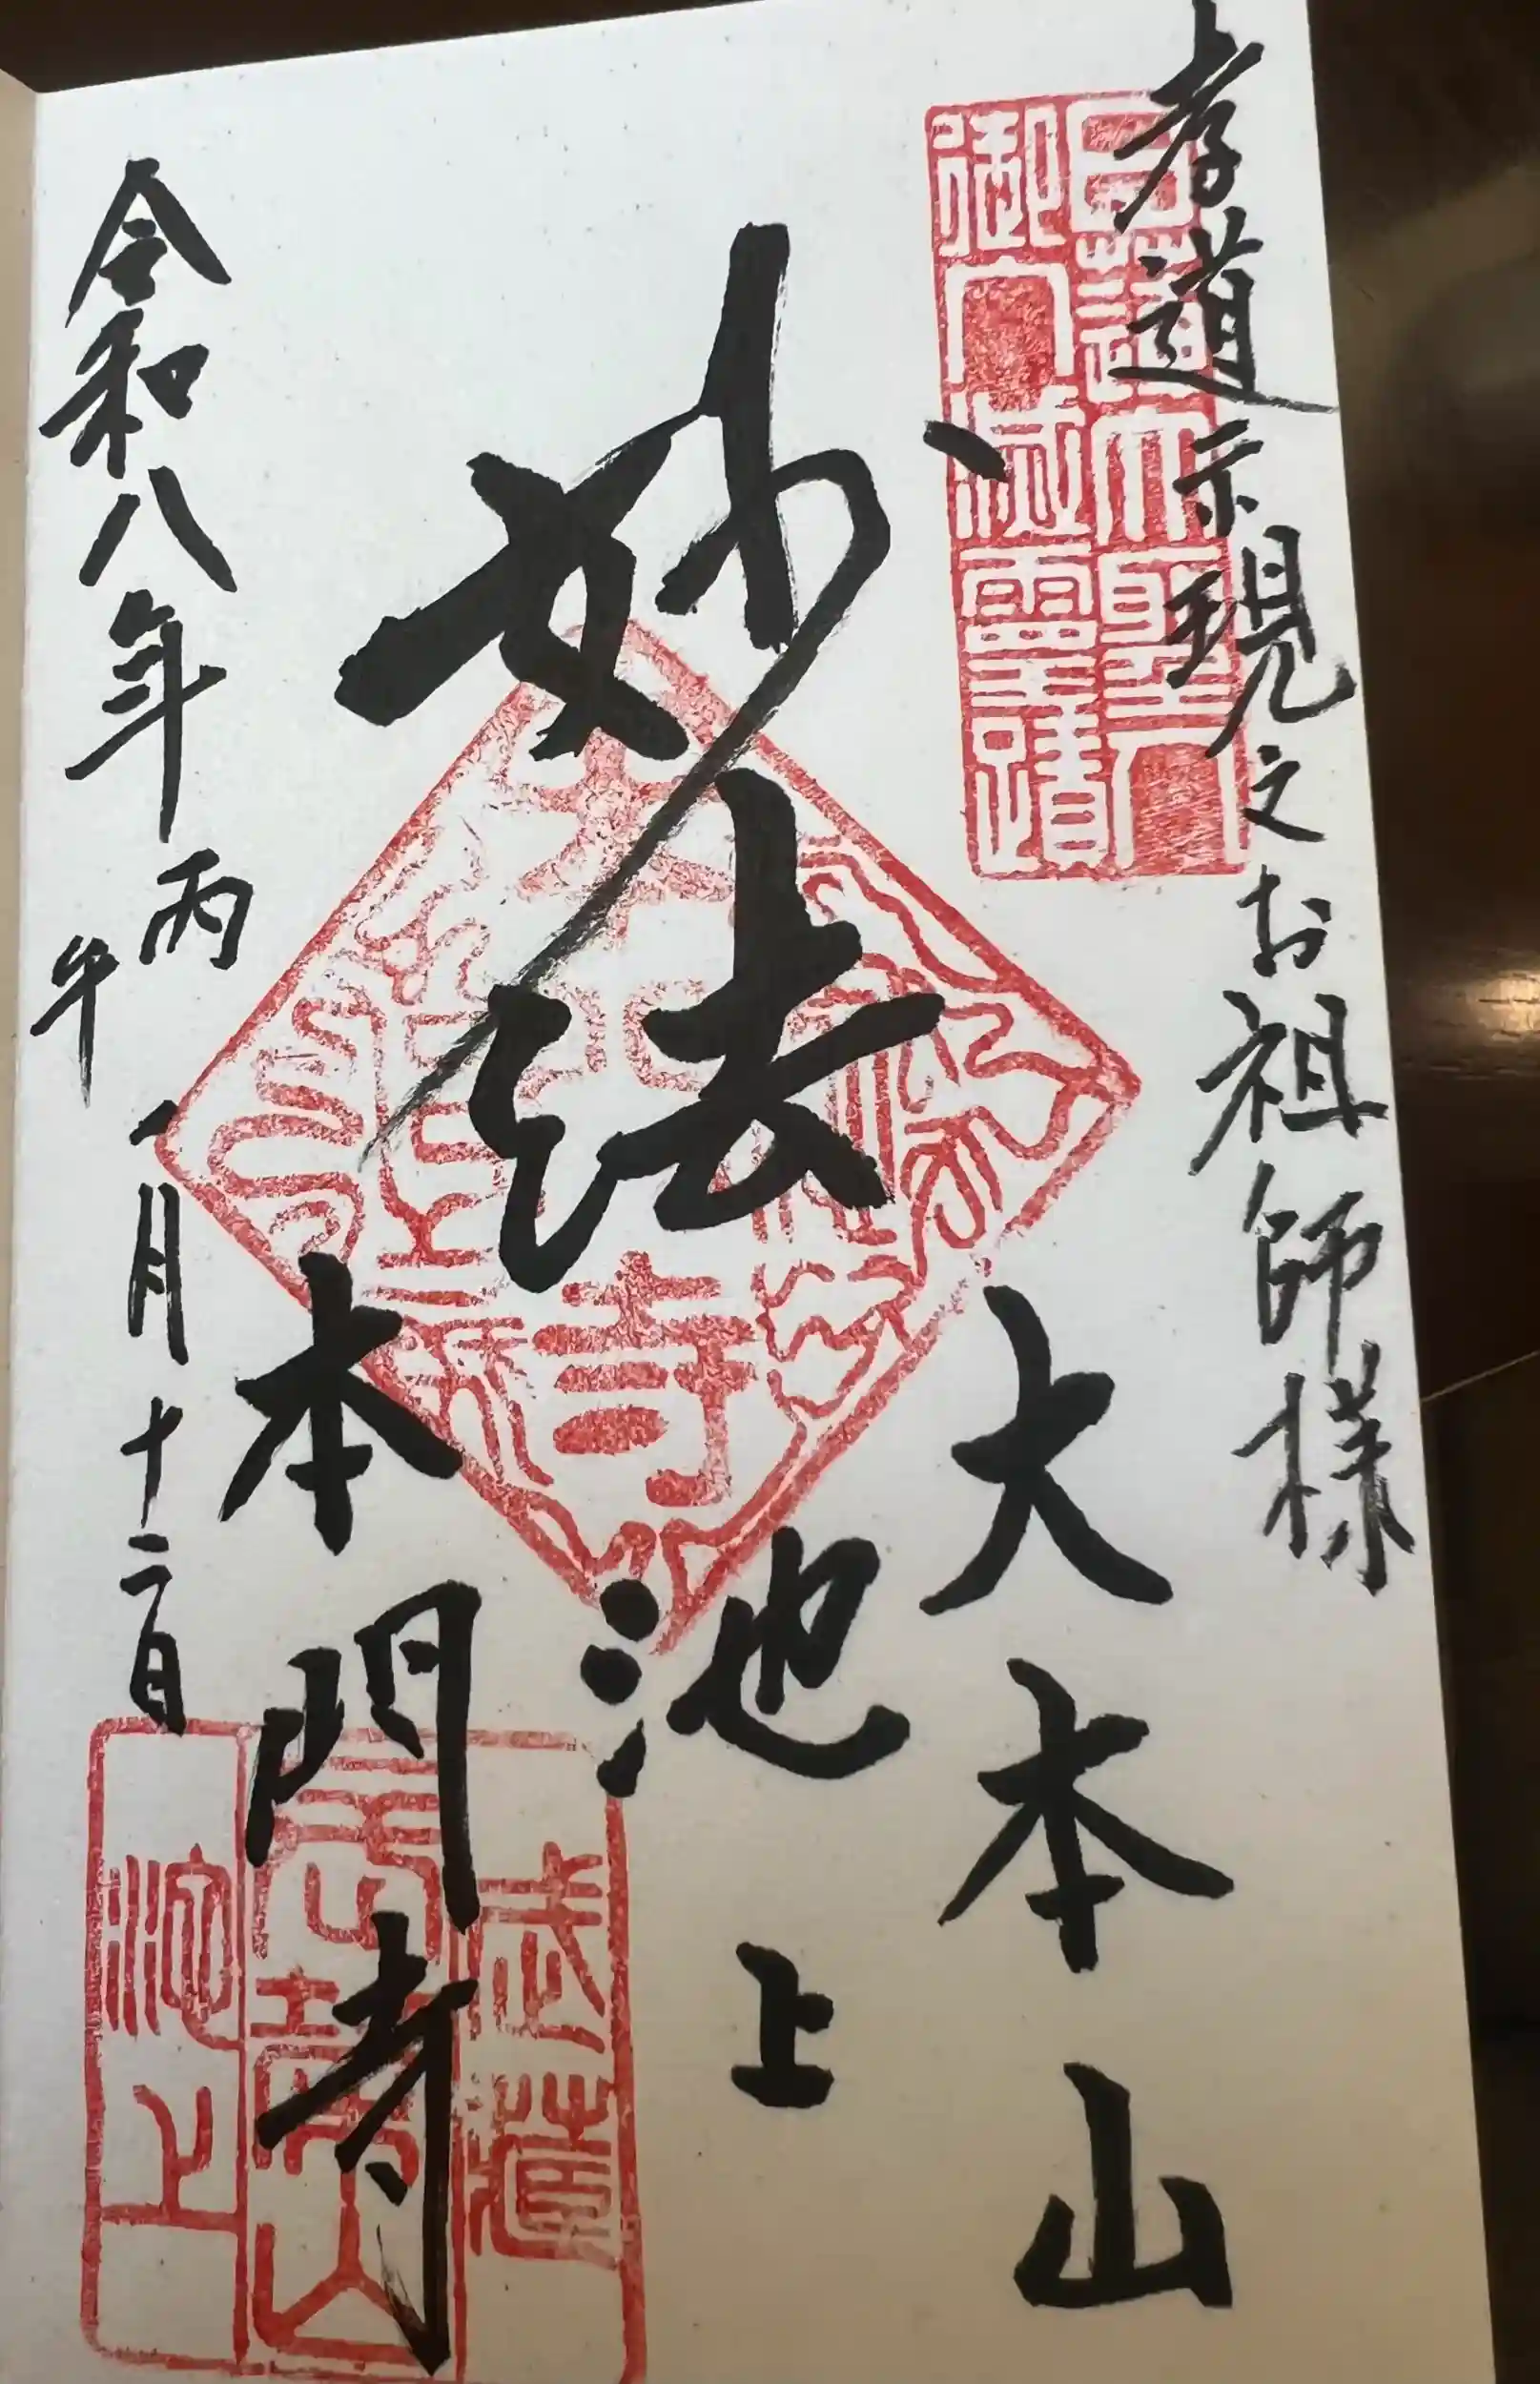 孝道示現之お祖師様
日蓮大聖人
御入滅霊蹟
妙法
大本山
池上
本門寺
令和八年丙午一月十二日
武蔵
長栄山
池上